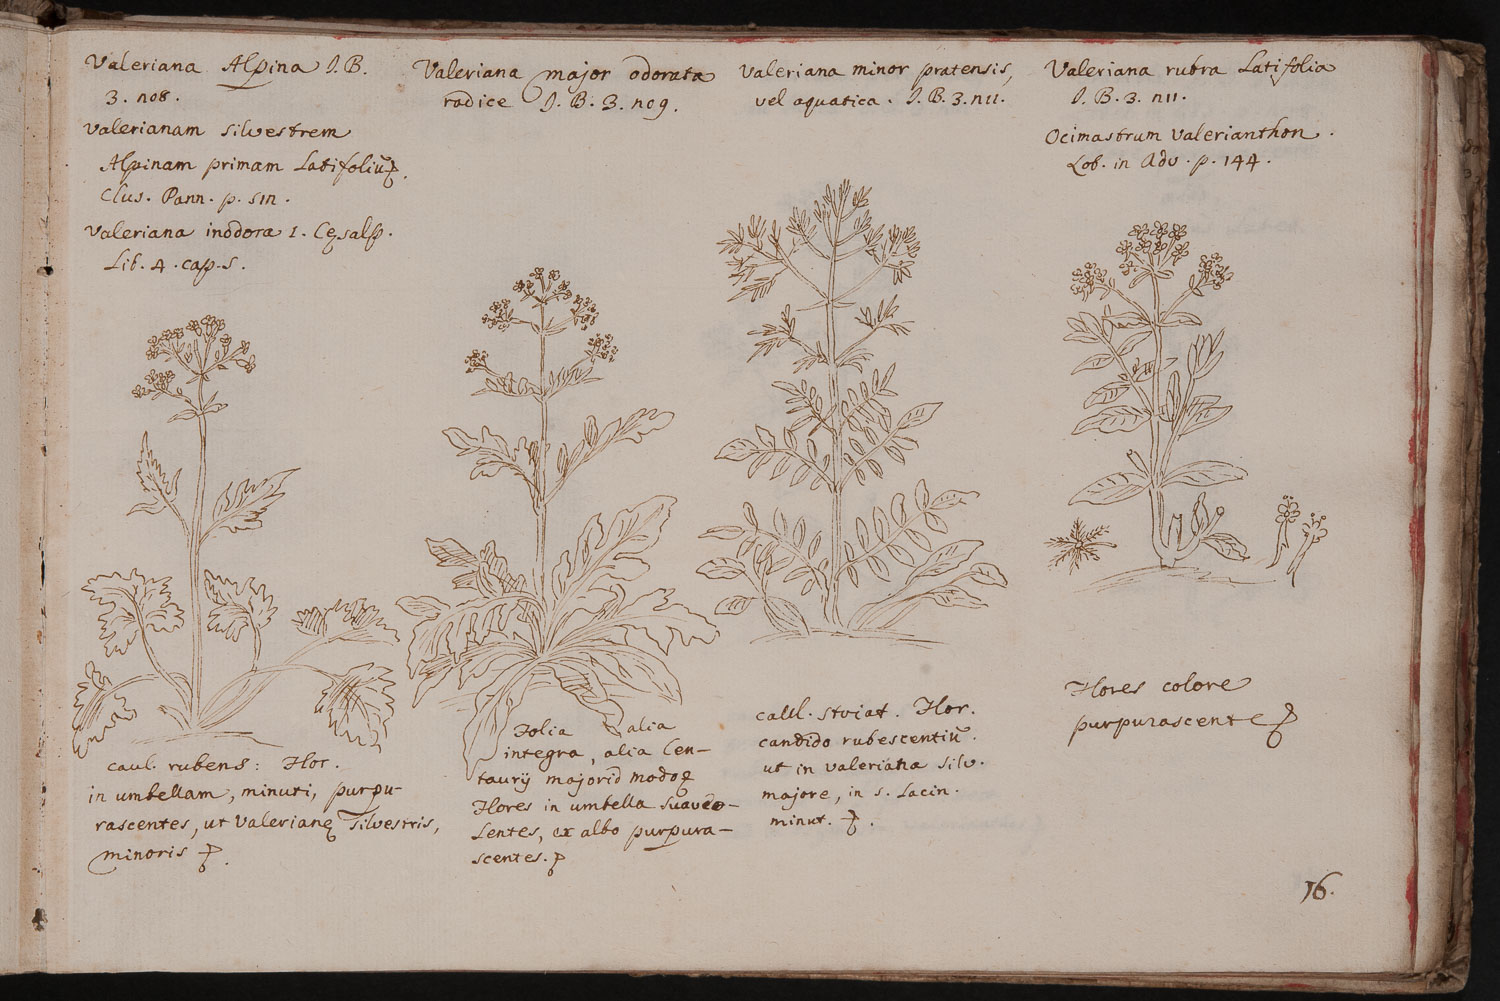 Valeriana Alpina I.B.
3. n08.
Valerianam silvestrem
Alpinam primam Latifoliũ
Clus. Pann. p. 511.
Valeriana inodora 1. Cęsalp.
Lib. 4. cap. 5.
caul. rubens: Flor.
in umbellam, minuti, purpu-
rascentes, ut Valerianę Silvestris,
minoris
Valeriana major odorata
radice I. B. 3. n09.
Folia alia
integra, alia Cen-
taurij majorid modo
Flores in umbella suaveo-
Lentes, ex albo purpura-
scentes.
Valeriana minor pratensis,
vel aquatica. I.B. 3. n11.
caul. striat. Flor.
candido rubescentiũ.
ut in valeriana silv.
majore, in 5. Lacin.
minut.
Valeriana rubra Latifolia
I. B. 3. n11.
Ocimastrum valerianthon.
Lob. in Adv. p. 144.
Flores colore
purpurascente
16.